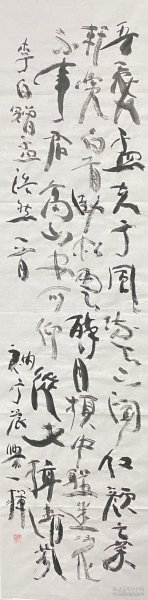 吾愛孟夫子風流天下聞紅顏棄
軒冕白首臥松雲醉月頻中聖迷花
不事君高山安可仰從此揖清芬
李白贈孟浩然一首